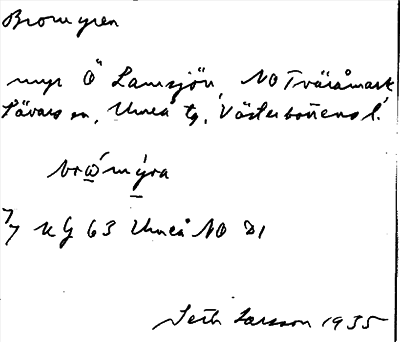 Bromyren
myr Ö Lamsjön, NO Tväråmark
Sävars sn, Umeå tg, Västerbottens l.
brω̲´mýra
7/7 K G 63 Umeå NO D1
Seth Larsson 1935